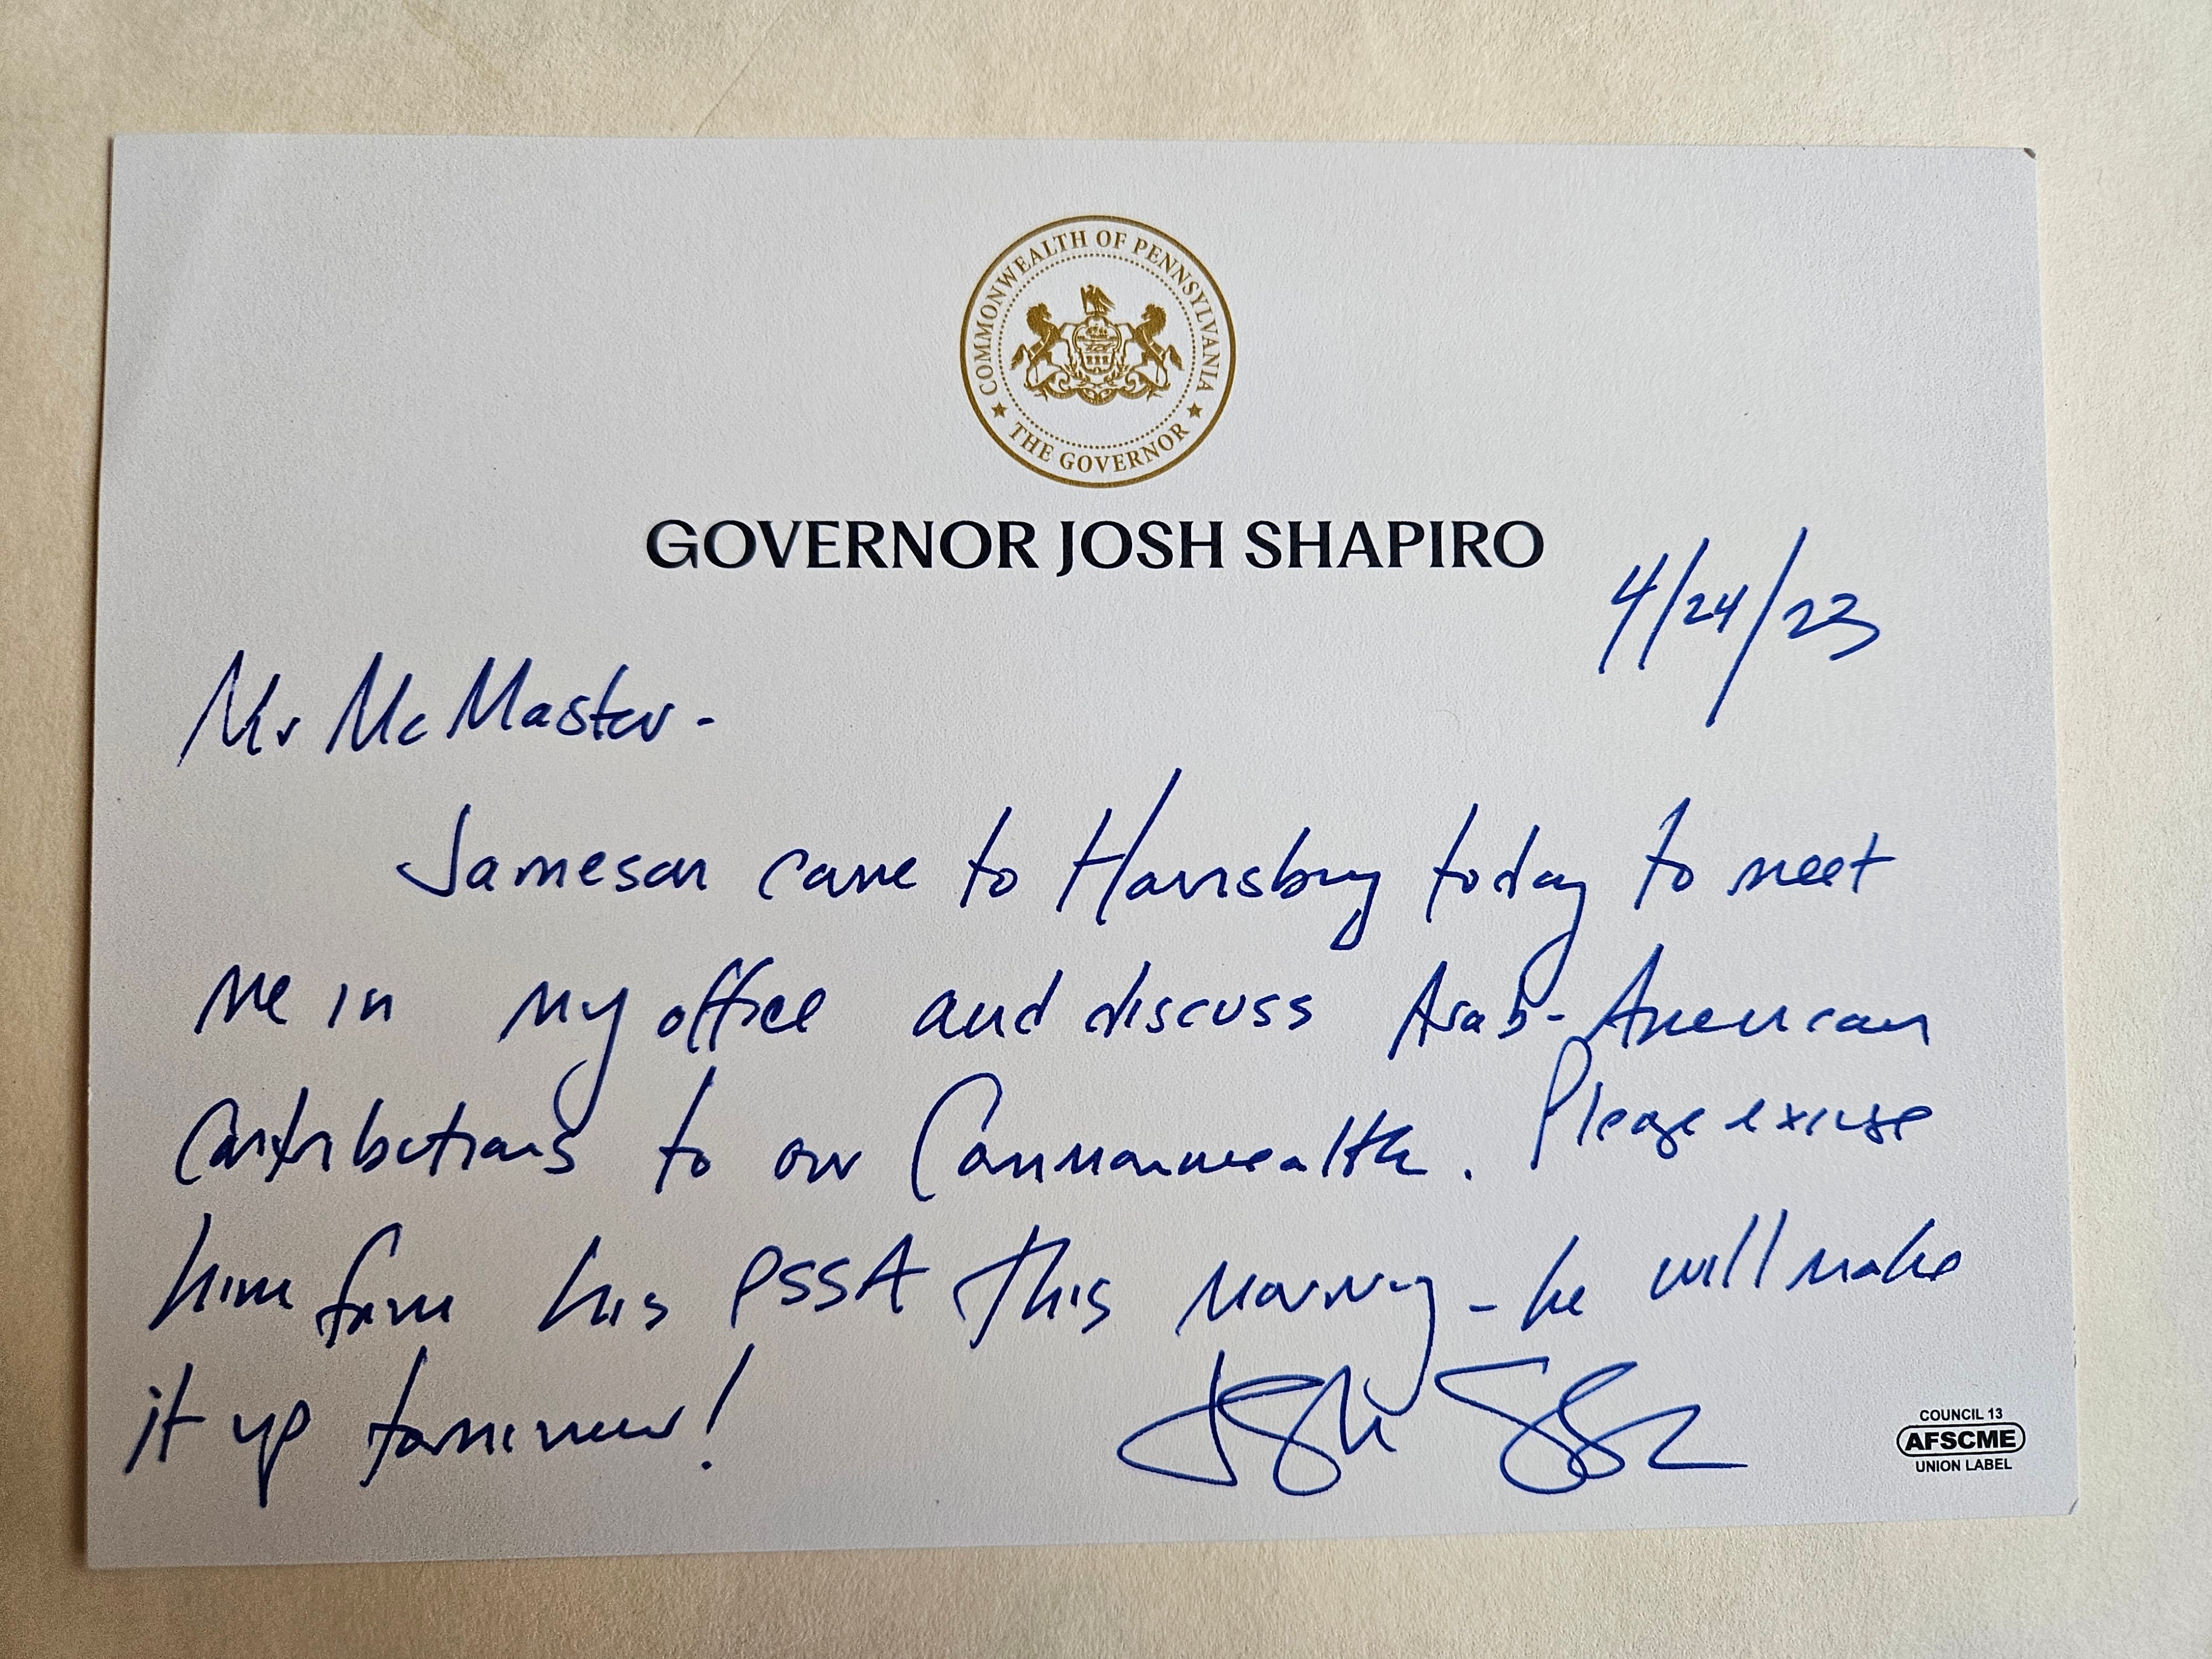 COMMONWEALTH OF PENNSYLVANIA
★ THE GOVERNOR ★
GOVERNOR JOSH SHAPIRO
4/24/23
Mr McMaster-
Jameson came to Harrisburg today to meet
me in my office and discuss Arab-American
Contributions to our Commonwealth. Please excuse
him from his PSSA this morning - he will make
it up tomorrow!
Josh Shapiro
COUNCIL 13
AFSCME
UNION LABEL